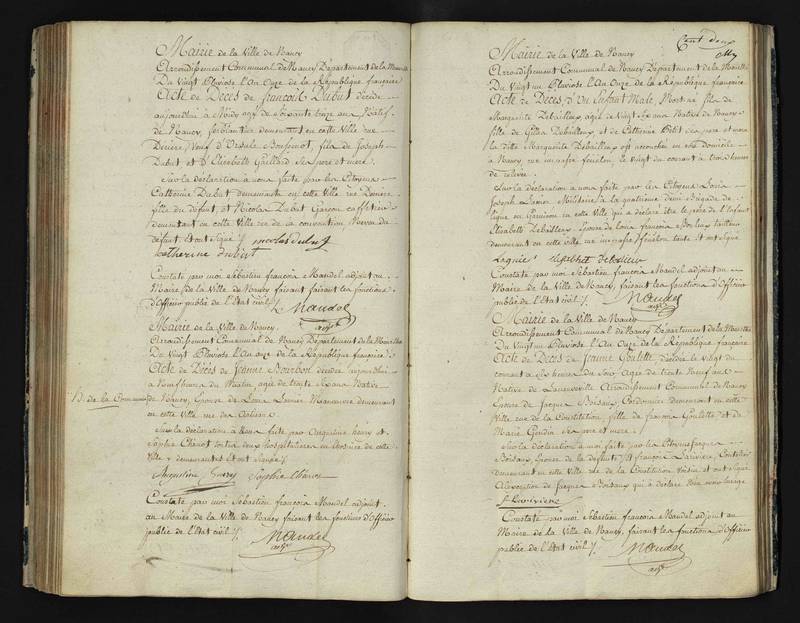 Mairie de la Ville de Nancy
Arrondissement Communal de Nancy Département de la Meurthe
Du Vingt Pluviose l'An Onze de la République française
Acte de Décès de françois Dubut décédé
aujourdhui à Midy agé de soixante treize ans Natif
de Nancy, ferblantier demeurant en cette Ville rue
Derrière, Veuf d'Ursule Bonfinot, fils de Joseph
Dubut et d'Elisabeth Gaillard ses père et mère.
Sur la déclaration à nous faite par les Citoyens
Catherine Dubut demeurante en cette Ville rue Derrière
fille du défunt, et Nicolas Dubut Garçon caffetier
demeurant en cette Ville rue de la convention Neveu du
défunt Et ont signé /. nicolas dubut
Catherine Dubut
Constaté par moi Sébastien françois Mandel adjoint au
Maire de la Ville de Nancy faisant faisant les fonctions
d'Officier public de l'Etat civil /. Mandel
adjt
Mairie de la Ville de Nancy
Arrondissement Communal de Nancy Département de la Meurthe
Du Vingt Pluviose l'An onze de la République française
Acte de Décès de Jeanne Bourbon décédée aujourdhui
à heures du Matin agée de trente ans Native
de la Commune
de Nancy, Epouse de Louis Manoeuvre demeurant
en cette Ville rue des
Sur la déclaration à Nous faite par Jacqueline henry et
Sophie Chanot toutes deux hospitalières en l'hospice de cette
Ville y demeurantes Et ont signé /.
Jacqueline henry Sophie Chanot
Constaté par moi Sébastien françois Mandel adjoint
au Maire de la Ville de Nancy faisant les fonctions d'Officier
public de l'Etat civil /.
Mandel
adjt
Cent deux
Mairie de la Ville de Nancy
Arrondissement Communal de Nancy Département de la Meurthe
Du Vingt un Pluviose l'An Onze de la République française
Acte de Décès d'Un Enfant Male, Mort né fils de
Marguerite Debailleux agée de Vingt ans Native de Nancy
fille de Gilles Debailleux et de Catherine ses père et mère
la dite Marguerite Debailleux est accouchée en son domicile
à Nancy rue fénélon, le Vingt du courant à trois heures
de relevée.
Sur la déclaration à nous faite par les Citoyens Louis
Joseph Militaire à la quatrième demi Brigade de
ligne en Garnison en cette Ville qui a déclaré être le père de l'Enfant
Elisabeth Debailleux Epouse de Louis françois tailleur
demeurant en cette ville rue fénélon tante Et ont signé
Elisabeth
Constaté par moi Sébastien françois Mandel adjoint au
Maire de la Ville de Nancy, faisant les fonctions d'Officier
public de l'Etat civil /. Mandel
adjt
Mairie de la Ville de Nancy
Arrondissement Communal de Nancy Département de la Meurthe
Du Vingt un Pluviose l'An Onze de la République française
Acte de Décès de Jeanne Goulette décédée le Vingt du
courant à six heures du Soir agée de trente Neuf ans
Native de Laneuveville Arrondissement Communal de Nancy
Epouse de Jacques Boisaux Cordonnier demeurant en cette
Ville rue de la Constitution, fille de françois Goulette et de
Marie Gondin ses père et mère.
Sur la déclaration à moi faite par les Citoyens Jacques
Boisaux, Epoux de la défunte, Et françois Larivière, Coutelier
demeurant en cette Ville rue de la Constitution Voisin et ont signé
à l'exception de Jacques Boisaux qui a déclaré Nen avoir lusage
f. Larivière
Constaté par moi Sébastien françois Mandel adjoint au
Maire de la Ville de Nancy, faisant les fonctions d'Officier
public de l'Etat civil /.
Mandel
adjt